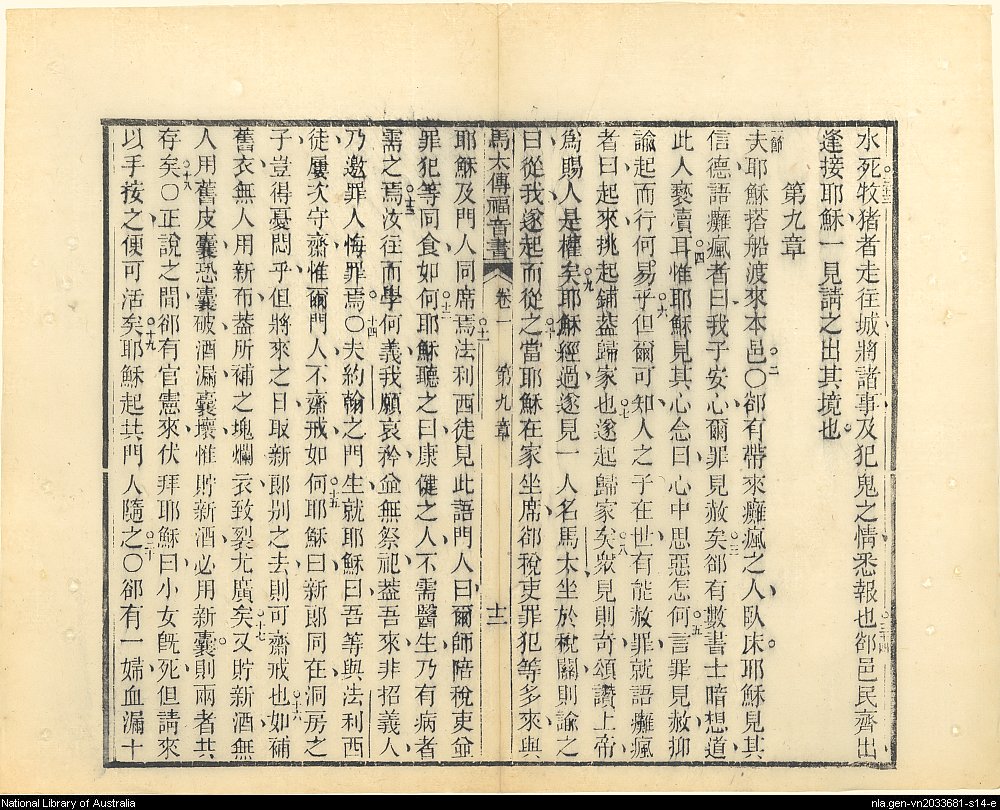 水死牧猪者走往城將諸事及犯鬼之情悉報也郤邑民齊出
逢接耶穌一見請之出其境也
第九章
夫耶穌搭船渡來本邑〇郤有帶來癱瘋之人臥床耶穌見其
信德語癱瘋者曰我子安心爾罪見赦矣郤有數書士暗想道
此人褻瀆耳惟耶穌見其心念曰心中思惡怎何言罪見赦抑
諭起而行何易乎但爾可知人之子在世有能赦罪就語癱瘋
者曰起來挑起鋪蓋歸家也遂起歸家矣眾見則奇頌讚上帝
為賜人是權矣耶穌經過遂見一人名馬太坐於稅關則諭之
曰從我遂起而從之當耶穌在家坐席郤稅吏罪犯等多來與
馬太傳福音書 卷一 第九章 十二
耶穌及門人同席焉法利西徒見此語門人曰爾師陪稅吏並
罪犯等同食如何耶穌聽之曰康健之人不需醫生乃有病者
需之焉汝往而學何義我願哀矜並無祭祀蓋吾來非招義人
乃邀罪人悔罪焉〇夫約翰之門生就耶穌曰吾等與法利西
徒屢次守齋惟爾門人不齋戒如何耶穌曰新郎同在洞房之
子豈得憂悶乎但將來之日取新郎別之去則可齋戒也如補
舊衣無人用新布蓋所補之塊爛衣致裂尤廣矣又貯新酒無
人用舊皮囊恐囊破酒漏囊壞惟貯新酒必用新囊則兩者共
存矣〇正說之間郤有官憲來伏拜耶穌曰小女既死但請來
以手按之便可活矣耶穌起共門人隨之〇郤有一婦血漏十
National Library of Australia
nla.gen-vn2033681-s14-e